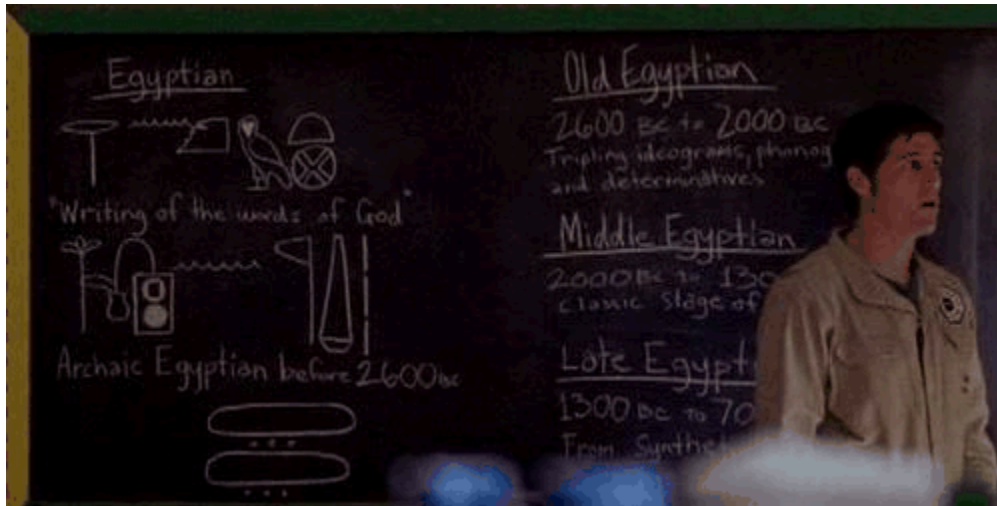 Egyptian
"Writing of the words of God"
Archaic Egyptian before 2600 BC
Old Egyptian
2600 BC to 2000 BC
Tripling ideograms, phonog
and determinatives
Middle Egyptian
2000 BC to 130
Classic Stage of
Late Egypt
1300 BC TO 70
From Synthe